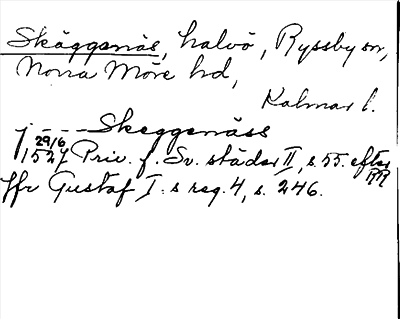 Skäggenäs, halvö, Ryssby sn,
Norra Möre hd,
Kalmar l.
j - - - Skeggenäss
29/6
1527 Priv. f. Sv. städer II, s. 55. efter
RR
Jfr Gustaf I:s reg. 4, s. 246.